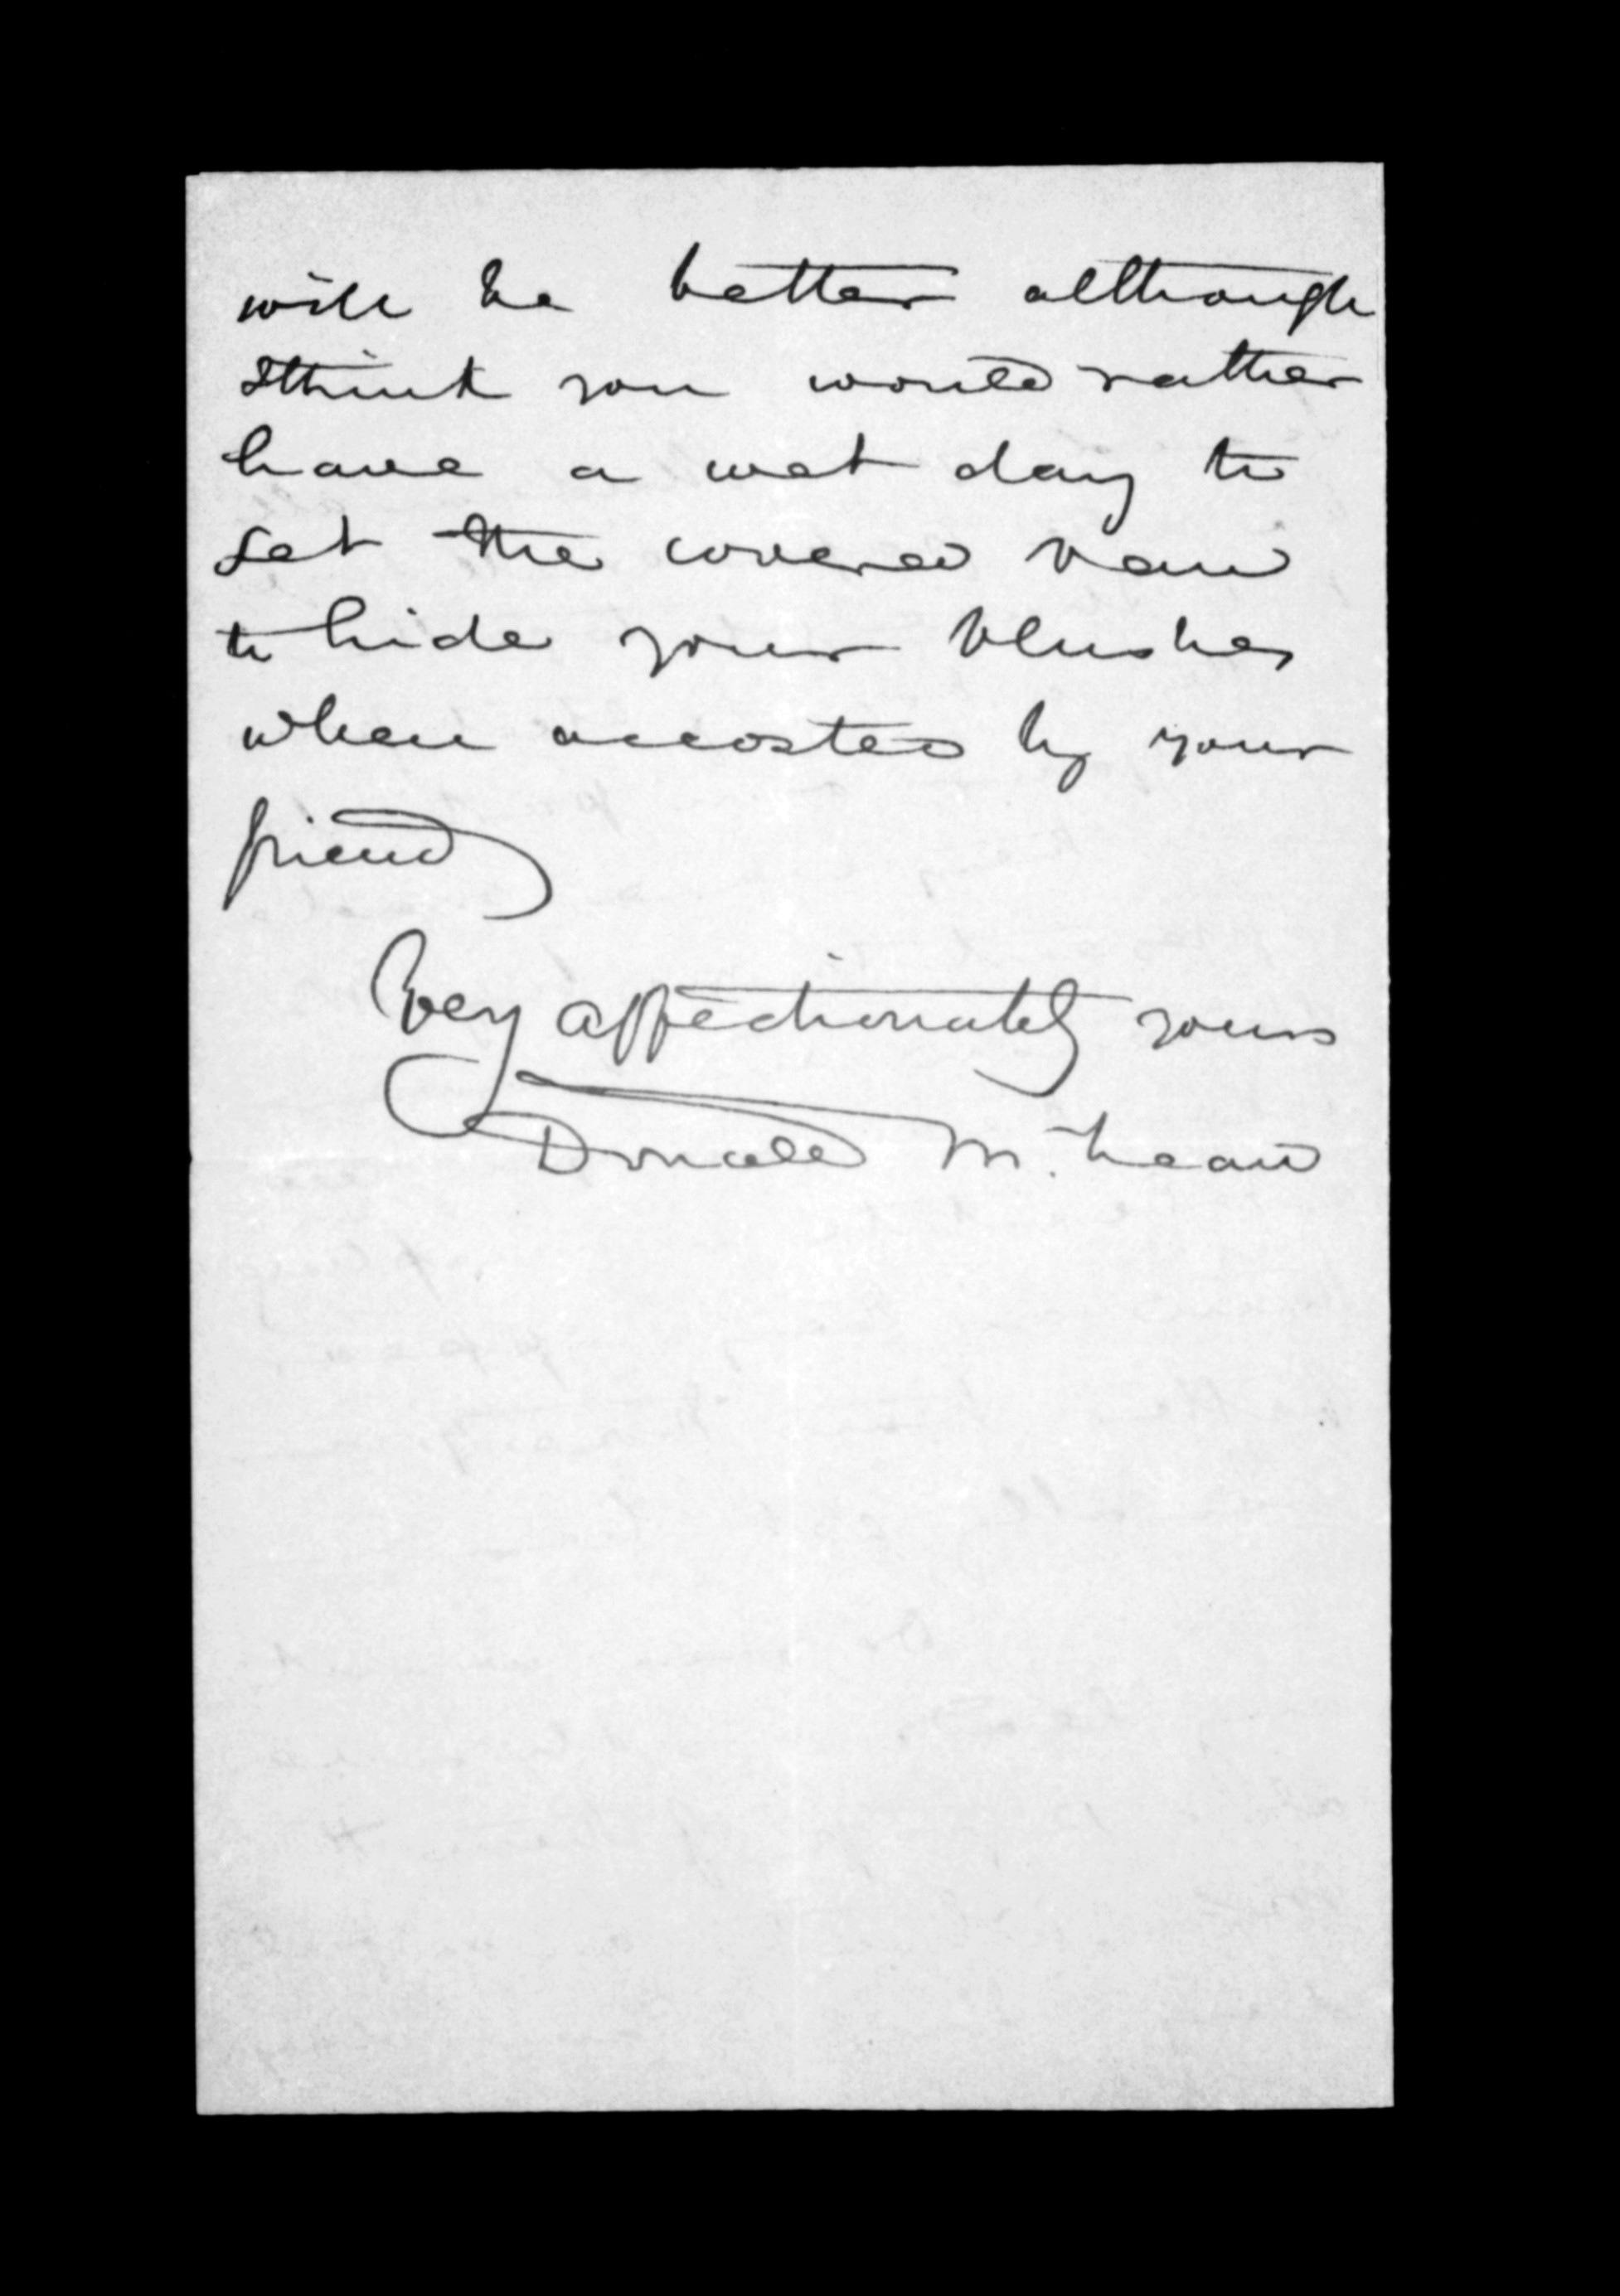 will be better although
I think you would rather
have a wet day to
let the covered van
to hide your blushes
when accosted by your
friend
Very affectionately yours
Donald McLean